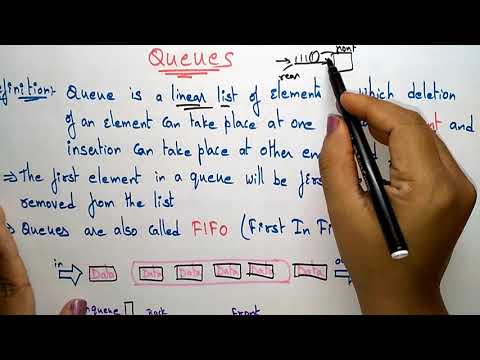 Queues
front
rear
Definition:- Queue is a linear list of Element which deletion
of an element can take place at one and
insertion can take place at other en
⇒ The first element in a queue will be firs
removed from the list
Queues are also called FIFO (First In Fi
in Data Data Data Data Data Data
Back Front